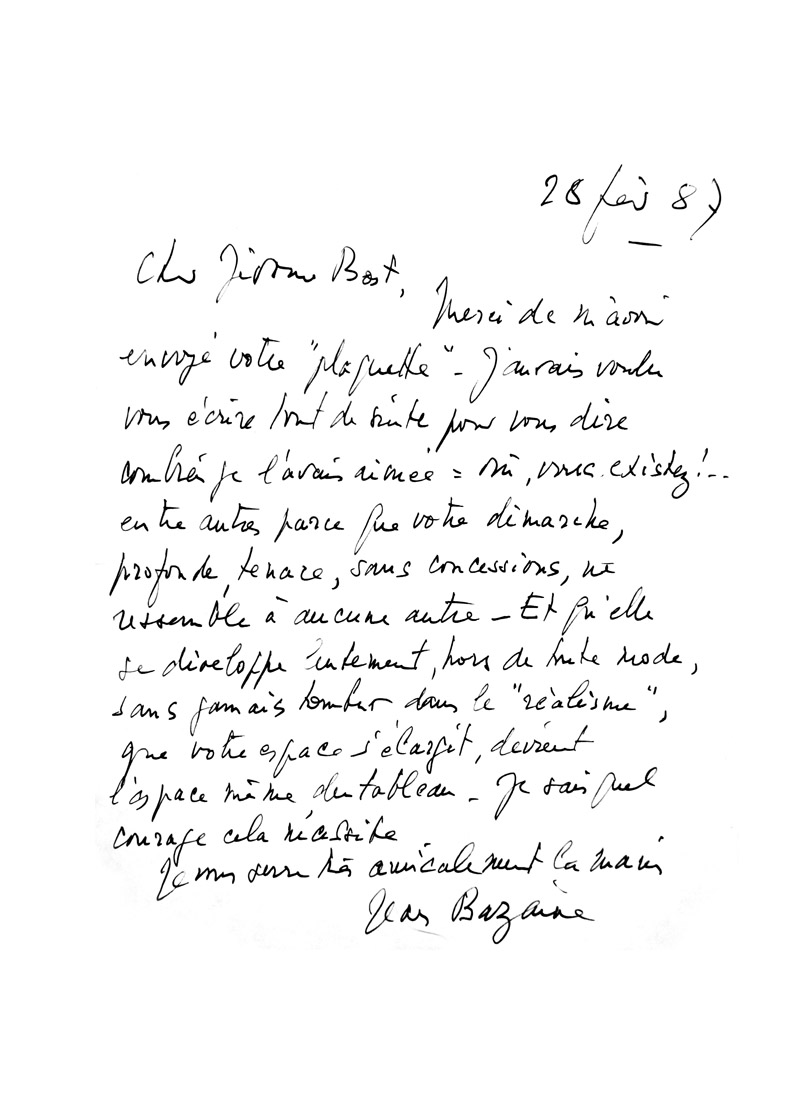 28 fév 87
Cher Jérôme Bost,
Merci de m'avoir
envoyé votre "plaquette" - J'aurais voulu
vous écrire tout de suite pour vous dire
combien je l'avais aimée = oui, vous existez !..
entre autres parce que votre démarche,
profonde, tenace, sans concessions, ne
ressemble à aucune autre - Et qu'elle
se développe lentement, hors de toute mode,
sans jamais tomber dans le "réalisme",
que votre espace s'élargit, devient
l'espace même du tableau - Je sais quel
courage cela nécessite
Je vous serre très amicalement la main
Jean Bazaine